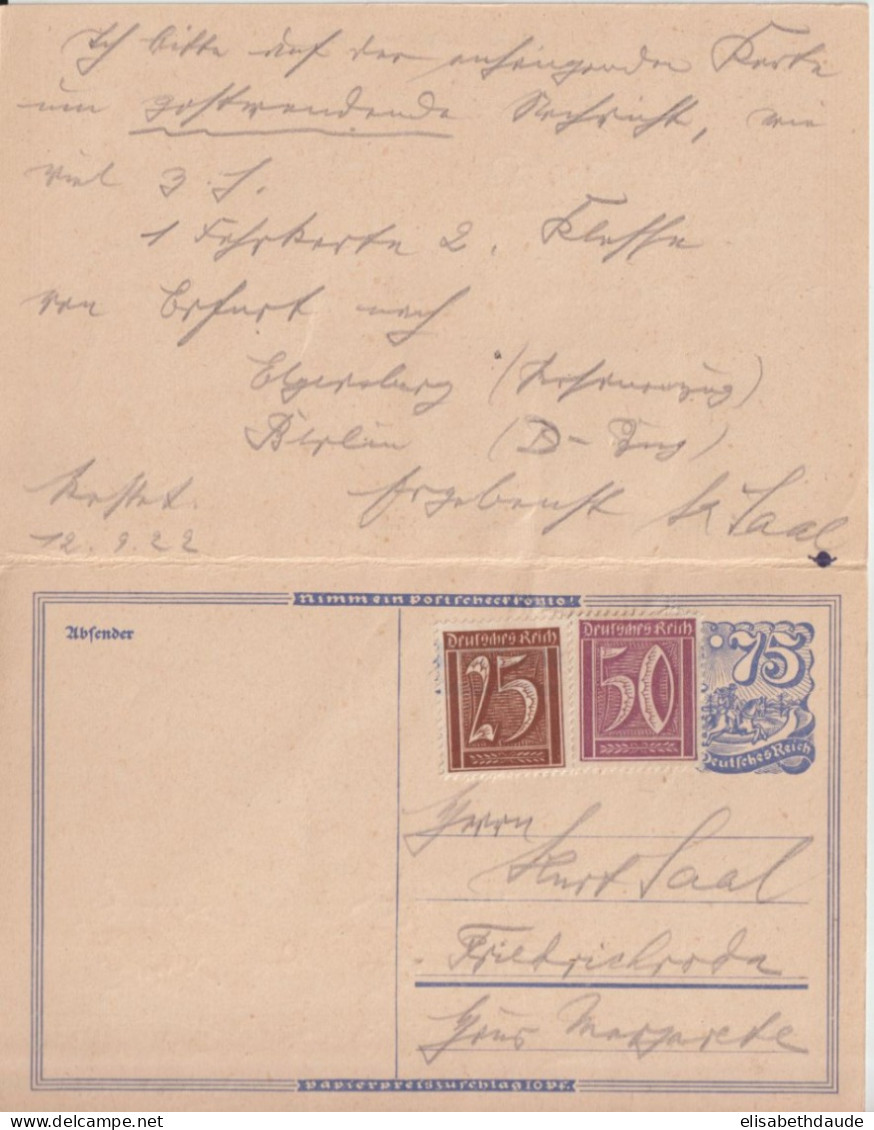 Ich bitte auf der anhängenden Karte
um postwendende Nachricht, wie
viel z. J.
1 Fahrkarte 2. Klasse
von Erfurt nach
Elgersburg (Personenzug)
Berlin (D-Zug)
kostet. Ergebenst K Saal
12.9.22
Nimm ein Postscheckkonto!
Absender
Deutsches Reich
25
Deutsches Reich
50
75
Deutsches Reich
Herrn
Kurt Saal
Friedrichroda
Haus Margarete
Papierpreiszuschlag 10 Pf.
delcampe.net
elisabethdaude